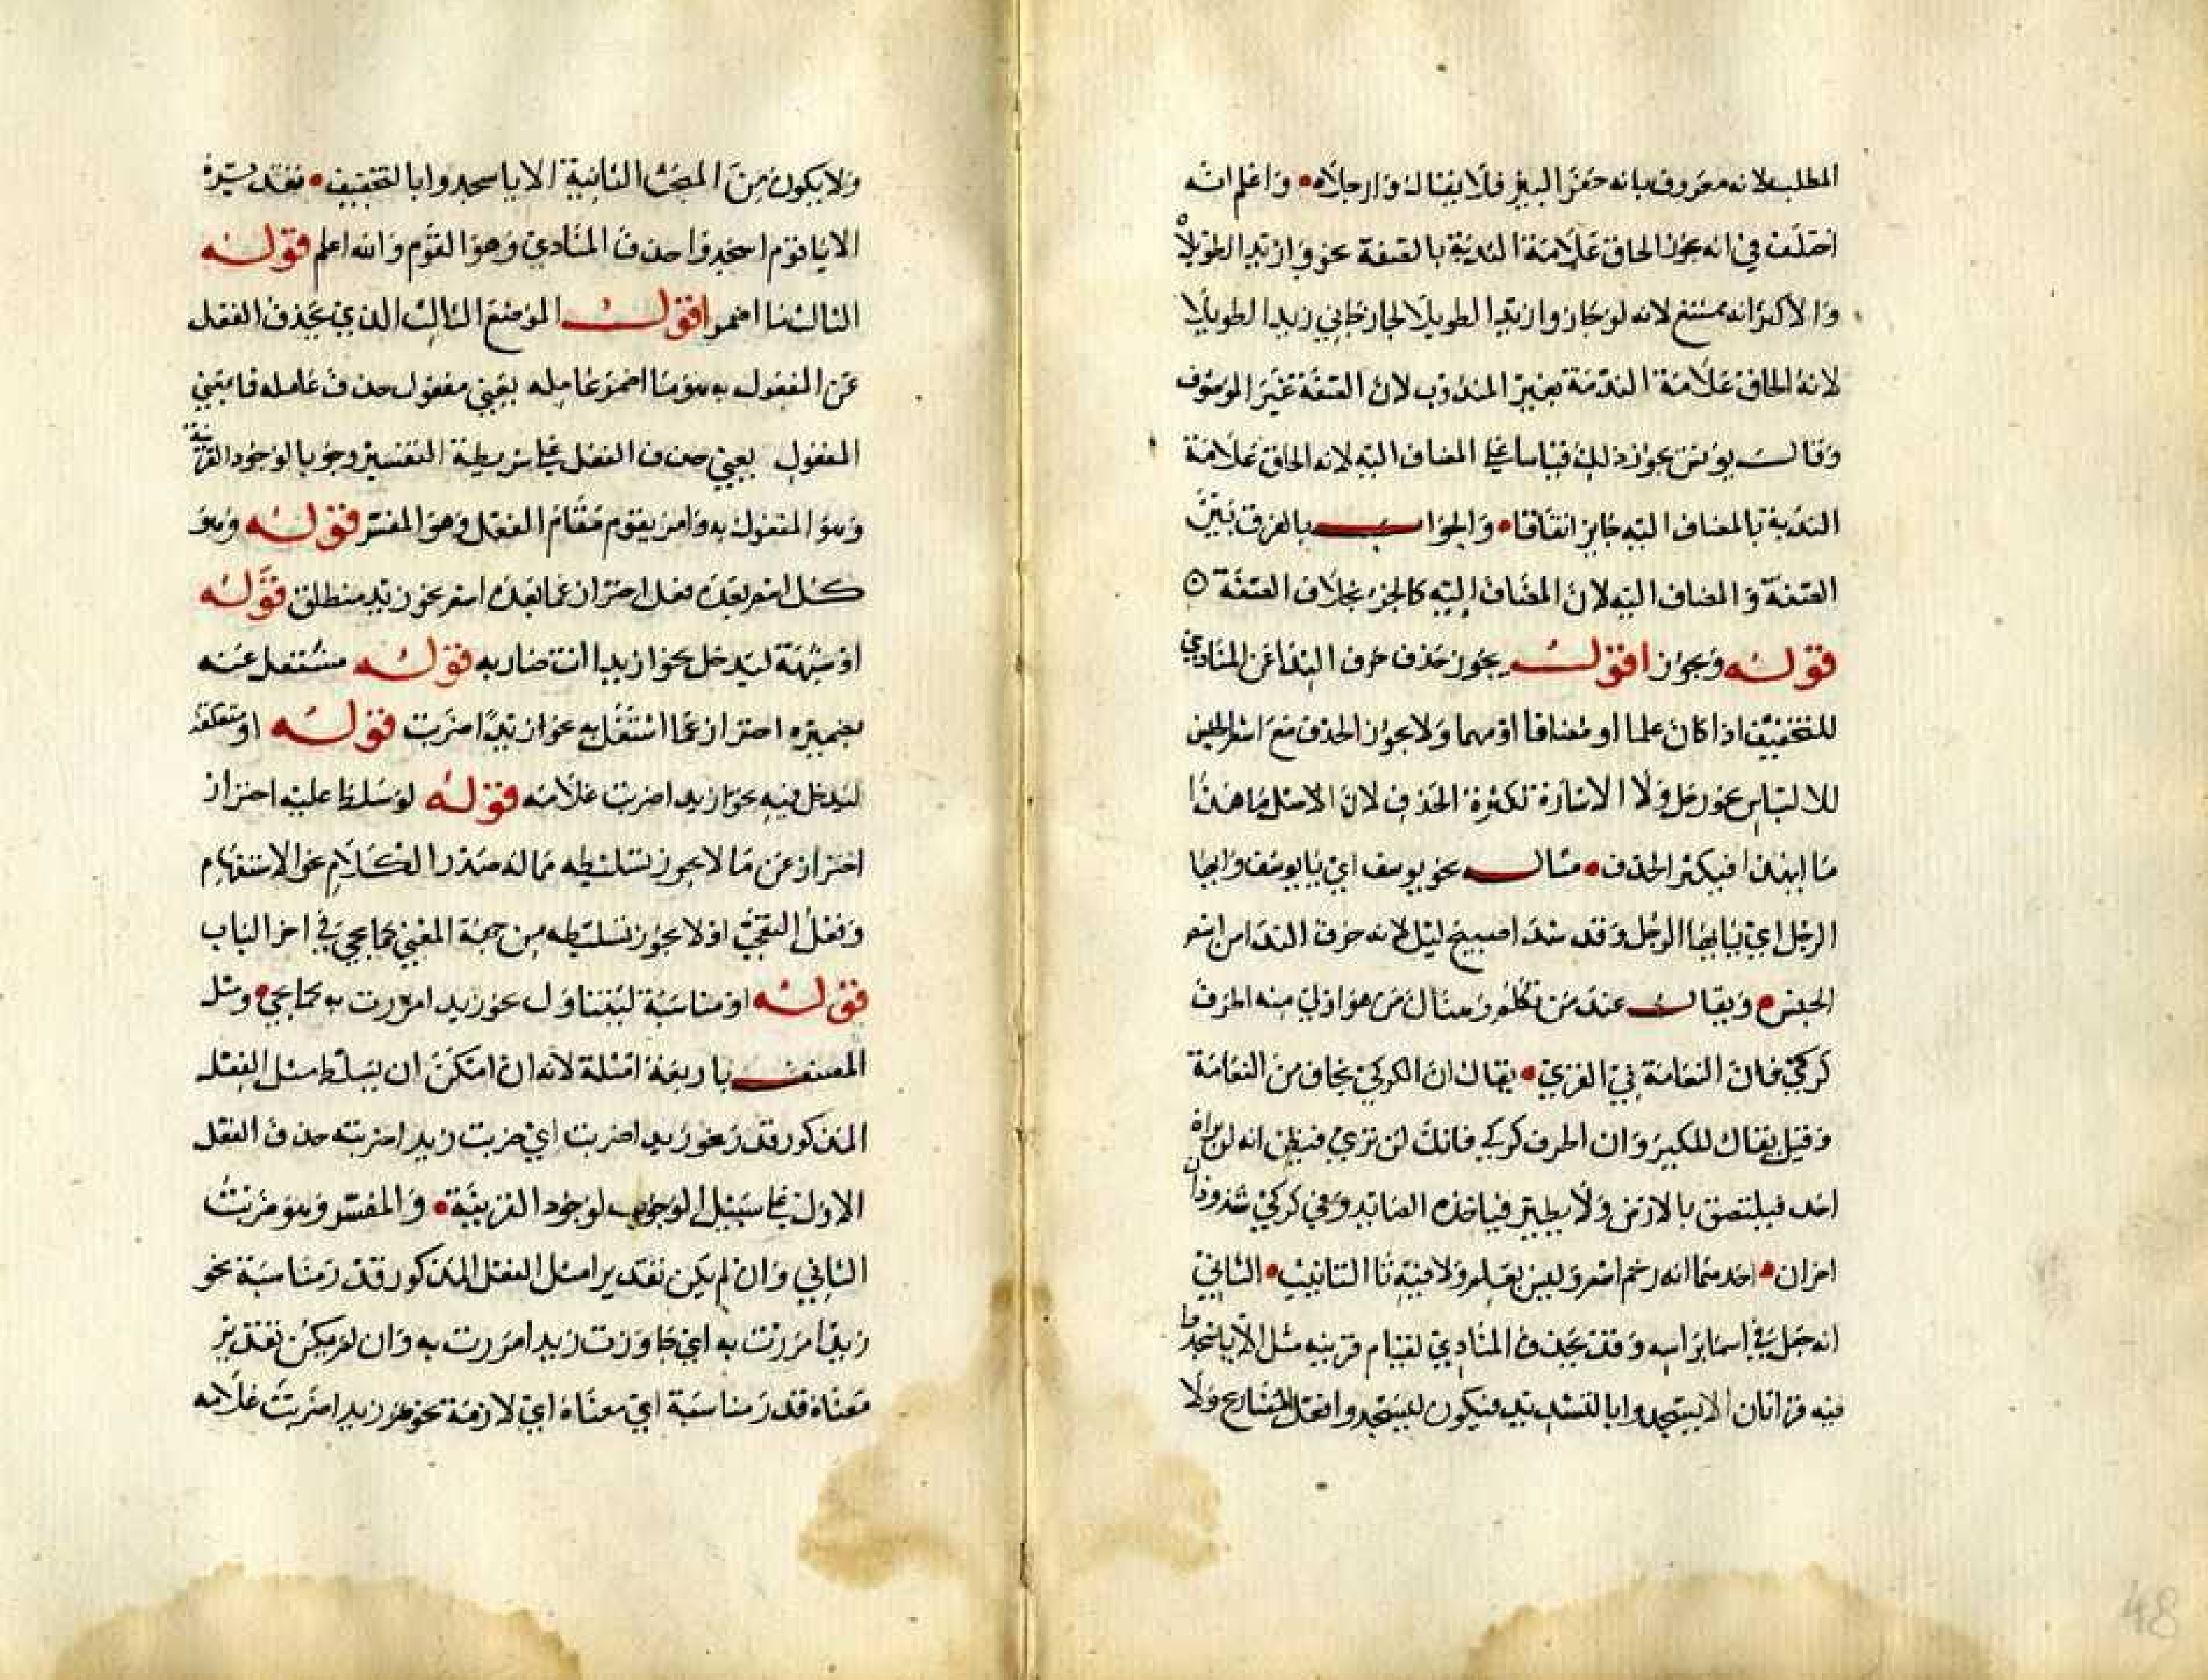 المطلب لانه معروف بانه حفر البير فلا يقال وارجلاه • واعلم انه
اختلف في انه يجوز الحاق علامة الندبة بالصفة نحو وازيد الطويلاه
والاكثر انه يمتنع لانه لو جاز وازيد الطويلا لجاز جاني زيد الطويلا
لانه الحاق علامة الندبة بغير المندوب لان الصفة غير الموصوف
وقال يونس يجوز ذلك قياسا على المضاف اليه لانه الحاق علامة
الندبة بالمضاف اليه جايز اتفاقا • والجواب بالفرق بين
الصفة والمضاف اليه لان المضاف اليه كالجزء بخلاف الصفة
قوله ويجوز اقول يجوز حذف حرف الندا عن المنادي
للتخفيف اذا كان علما او مضافا او مبهما ولا يجوز الحذف مع اسم الجنس
للالتباس نحو رجل ولا الاشارة لكثرة الحذف لان الاصل يا هذا
يا ايهذا فيكثر الحذف • مثال نحو يوسف اي يا يوسف وايها
الرجل اي يا ايها الرجل وقد شذ اصبح ليل لانه حذف الندا من اسم
الجنس • ويقال عند من تكلم ومثال من هو اولى منه اطرق
كركي فان النعامة في القري • يقال ان الكركي يخاف من النعامة
وقيل يقال للكبير وان اطرف كركي فانك لن تري فيظن انه لن يراه
احد فيلتصق بالارض ولا يطير فياخذه الصايد وفي كركي شذوذان
اخران • احدهما انه رخم اسم وليس بعلم ولا فيه تا التانيث • الثاني
انه جعل في اسما براسه وقد يحذف المنادي لقيام قرينة مثل الا يا اسجدوا
فيه قراتان الا يسجدوا بالتشديد فيكون ليسجدوا فعل المضارع ولا
ولا يكون من المبحث الثانية الا يا سجدوا بالتخفيف • تقديره
الا يا قوم اسجدوا حذف المنادي وهو القوم والله اعلم قوله
الثالث ما اضمر اقول الموضع الثالث الذي يحذف الفعل
عن المفعول به هو ما اضمر عامله يعني مفعول حذف عامله فابقي
المفعول يعني حذف الفعل على شريطة التفسير وجوبا لوجود القرينة
وهو المفعول به وامر يقوم مقام الفعل وهو المفسر قوله وهو
كل اسم بعده فعل احتراز عما بعده اسم نحو زيد منطلق قوله
او شبهه ليدخل نحو ازيدا انت ضاربه قوله مشتغل عنه
بضميره احتراز عما اشتغل به نحو ازيدا ضربت قوله او متعلقه
ليدخل فيه نحو ازيدا ضربت غلامه قوله لو سلط عليه احتراز
احتراز عن ما لا يجوز تسليطه مما له صدر الكلام نحو الاستفهام
وفعل التعجب او لا يجوز تسليطه من جهة المعني كما يجي في اخر الباب
قوله او مناسبه ليتناول نحو زيدا مررت به كما يجي • ومثل
المصنف باربعة امثلة لانه ان امكن ان يسلط مثل الفعل
المذكور قدر نحو زيدا ضربت اي ضربت زيدا ضربته حذف الفعل
الاول على سبيل الوجوب لوجود القرينة • والمفسر وهو ضربت
الثاني وان لم يكن تقدير مثل الفعل المذكور قدر مناسبة نحو
زيدا مررت به اي جاوزت زيدا مررت به وان لم يكن تقدير
معناه قدر مناسبة اي معناه اي لازمة نحو زيدا ضربت غلامه
48